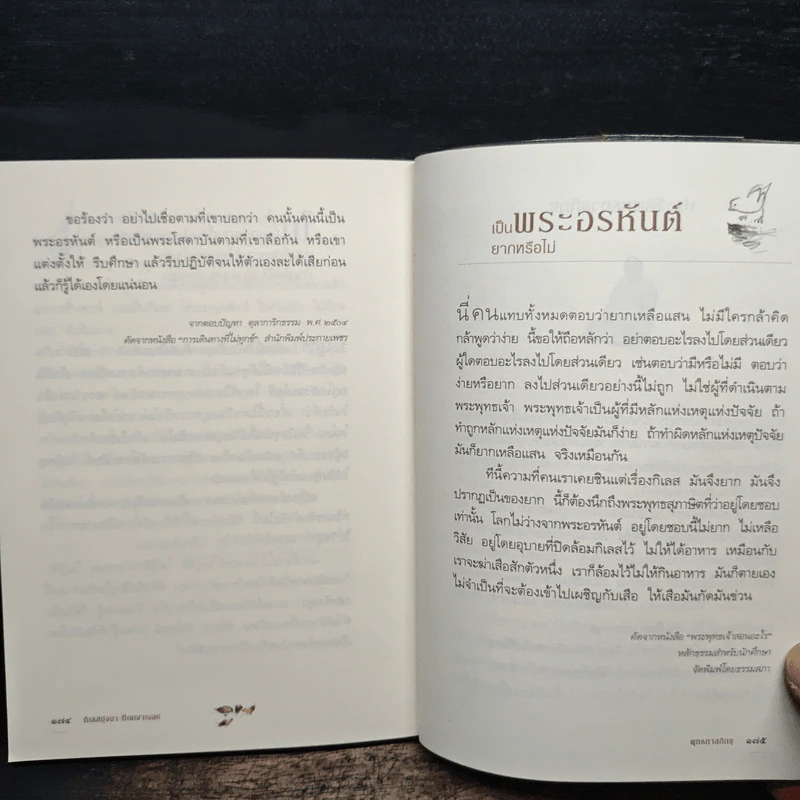 ขอร้องว่า อย่าไปเชื่อตามที่เขาบอกว่า คนนั้นคนนี้เป็น
พระอรหันต์ หรือเป็นพระโสดาบันตามที่เขาลือกัน หรือเขา
แต่งตั้งให้ รีบศึกษา แล้วรีบปฏิบัติจนให้ตัวเองละได้เสียก่อน
แล้วก็รู้ได้เองโดยแน่นอน
จากตอบปัญหา ตุลาการิกธรรม พ.ศ.๒๕๐๔
คัดจากหนังสือ "การเดินทางที่ไม่ทุกข์" สำนักพิมพ์ประกายเพชร
๑๗๔
เป็นพระอรหันต์
ยากหรือไม่
นี่คนแทบทั้งหมดตอบว่ายากเหลือแสน ไม่มีใครกล้าคิด
กล้าพูดว่าง่าย นี้ขอให้ถือหลักว่า อย่าตอบอะไรลงไปโดยส่วนเดียว
ผู้ใดตอบอะไรลงไปโดยส่วนเดียว เช่นตอบว่ามีหรือไม่มี ตอบว่า
ง่ายหรือยาก ลงไปส่วนเดียวอย่างนี้ไม่ถูก ไม่ใช่ผู้ที่ดำเนินตาม
พระพุทธเจ้า พระพุทธเจ้าเป็นผู้ที่มีหลักแห่งเหตุแห่งปัจจัย ถ้า
ทำถูกหลักแห่งเหตุแห่งปัจจัยมันก็ง่าย ถ้าทำผิดหลักแห่งเหตุปัจจัย
มันก็ยากเหลือแสน จริงเหมือนกัน
ทีนี้ความที่คนเราเคยชินแต่เรื่องกิเลส มันจึงยาก มันจึง
ปรากฏเป็นของยาก นี้ก็ต้องนึกถึงพระพุทธสุภาษิตที่ว่าอยู่โดยชอบ
เท่านั้น โลกไม่ว่างจากพระอรหันต์ อยู่โดยชอบนี้ไม่ยาก ไม่เหลือ
วิสัย อยู่โดยอุบายที่ปิดล้อมกิเลสไว้ ไม่ให้ได้อาหาร เหมือนกับ
เราจะฆ่าเสือสักตัวหนึ่ง เราก็ล้อมไว้ไม่ให้กินอาหาร มันก็ตายเอง
ไม่จำเป็นที่จะต้องเข้าไปเผชิญกับเสือ ให้เสือมันกัดมันข่วน
คัดจากหนังสือ "พระพุทธเจ้าสอนอะไร"
หลักธรรมสำหรับนักศึกษา
จัดพิมพ์โดยธรรมสภา
พุทธทาสภิกขุ ๑๗๕